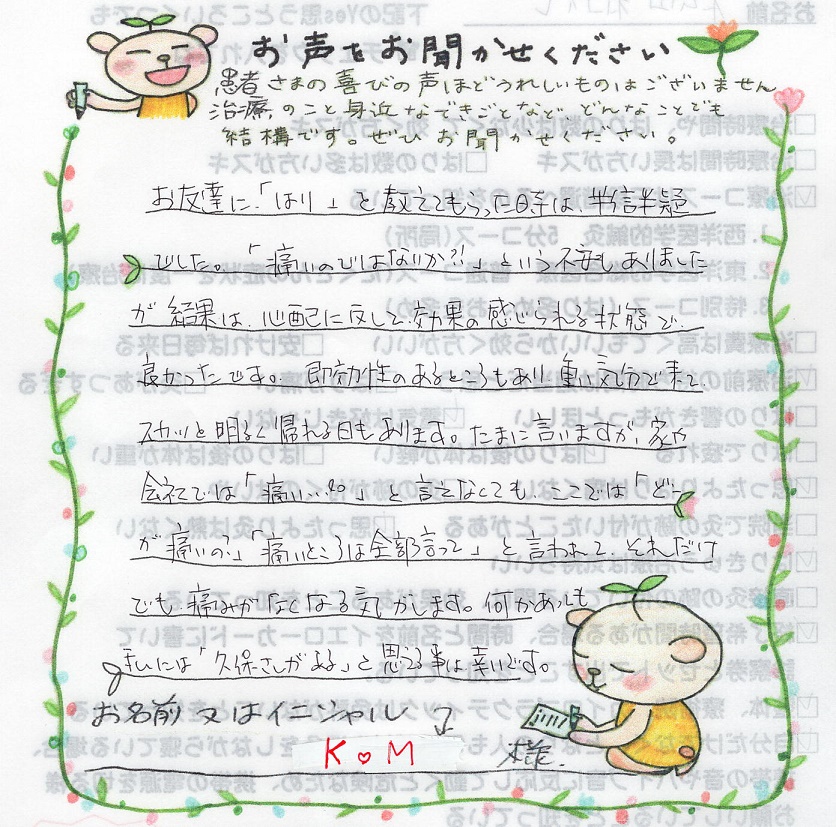 お声をお聞かせください
患者さまの喜びの声ほどうれしいものはございません
治療のこと身近なできごとなど、どんなことでも
結構です。ぜひお聞かせください。
お友達に「はり」を教えてもらった時は、半信半疑
でした。「痛いのではないか?!」という不安もありました
が結果は、心配に反して、効果の感じられる状態で、
良かったです。即効性のあるところもあり、重い気分で来て、
スカッと明るく帰れる日もあります。たまに言いますが、家や
会社では「痛い…。」と言えなくても、ここでは「どこ
が痛いの?」「痛いところは全部言って」と言われて、それだけ
でも、痛みがなくなる気がします。何かあっても
私には「久保さんがある」と思う事は幸いです。
お名前又はイニシャル
K♡M 様